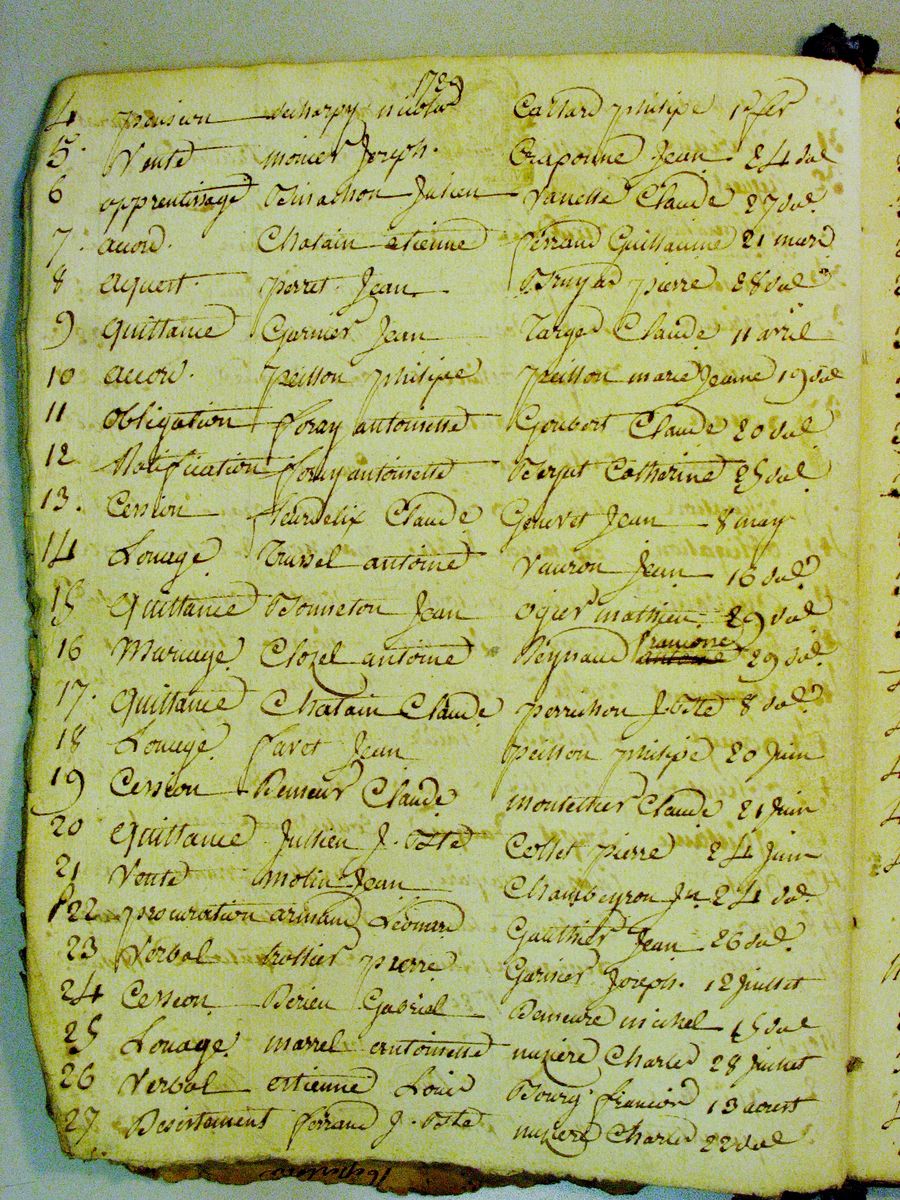 1729
4 pension decharpy nicolas Caltard philipe 1 fer
5. Vente monier Joseph. Craponne Jean 24 dud
6 apprentissage Binachon Julien Vanelle Claude 27 dud
7. accord. Chatain etienne ferraud Guillaume 21 mars
8 aquest. perret Jean Bruyas pierre 28 dud
9 quittance Garnier Jean Targe Claude 11 avril
10 accord. peisson philipe peisson marie Jeanne 19 dud
11 obligation foray antoinette Goubert Claude 20 dud
12 Notification foray antoinette Catherine 25 dud
13. Cession Claude Gouvet Jean 8 may
14 Louage Trussel antoine Vauron Jean 16 dud
15 quittance Bonneton Jean ogier mathieu 29 dud
16 Mariage Clozel antoine Reynaud francoise 29 dud
17. quittance Chatain Claude perrichon J. Bte 8 dud
18 Louage favet Jean peisson philipe 20 Juin
19 Cession Demeur Claude montethier Claude 21 Juin
20 quittance Jullien J. Bte Collet pierre 24 Juin
21 Vente molin Jean Chambeyron Jn 24 dud
22 procuration armand Léonard Gauthier Jean 26 dud
23 Verbal trossier pierre Garnier Joseph. 12 Juillet
24 Cession Berieu Gabriel Demeure michel 15 dud
25 Louage marrel antoinette miziere Charles 28 Juillet
26 Verbal estienne Louis Bourg francois 13 aoust
27 Desistement ferraud J. Bte miziere Charles 22 dud